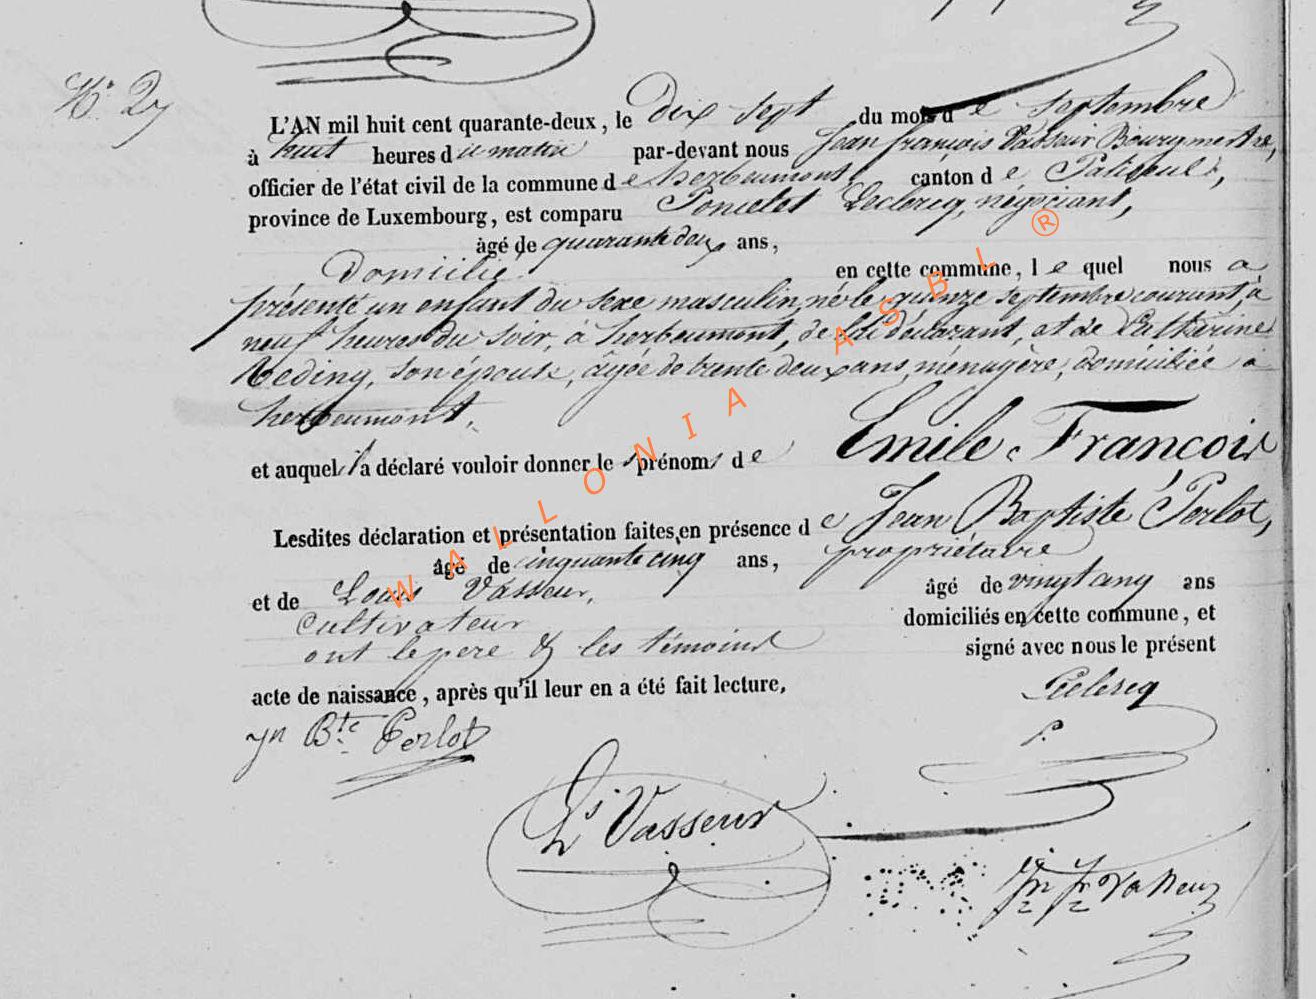 N° 27
L'AN mil huit cent quarante-deux, le dix sept du mois de septembre
à huit heures du matin par-devant nous Jean françois Vasseur Bourgmestre,
officier de l'état civil de la commune de herbeumont, canton de Paliseul,
province de Luxembourg, est comparu Poncelet Leclercq, négociant,
âgé de quarante deux ans,
Domicilié en cette commune, lequel nous a
présenté un enfant du sexe masculin, né le quinze septembre courant, à
neuf heures du soir, à herbeumont, de lui déclarant, et de Catharine
Reding, son épouse, âgée de trente deux ans, ménagère, domiciliée à
herbeumont,
et auquel il a déclaré vouloir donner les prénoms de Emile, François
Lesdites déclaration et présentation faites en présence de Jean Baptiste Perlot,
âgé de cinquante cinq ans, propriétaire
et de Louis Vasseur, âgé de vingt cinq ans
Cultivateur domiciliés en cette commune, et
ont le pere & les témoins signé avec nous le présent
acte de naissance, après qu'il leur en a été fait lecture,
Leclercq
P.
Jn Bte Perlot
Ls Vasseur
Jn fs Vasseur
WALLONIA ASBL ®